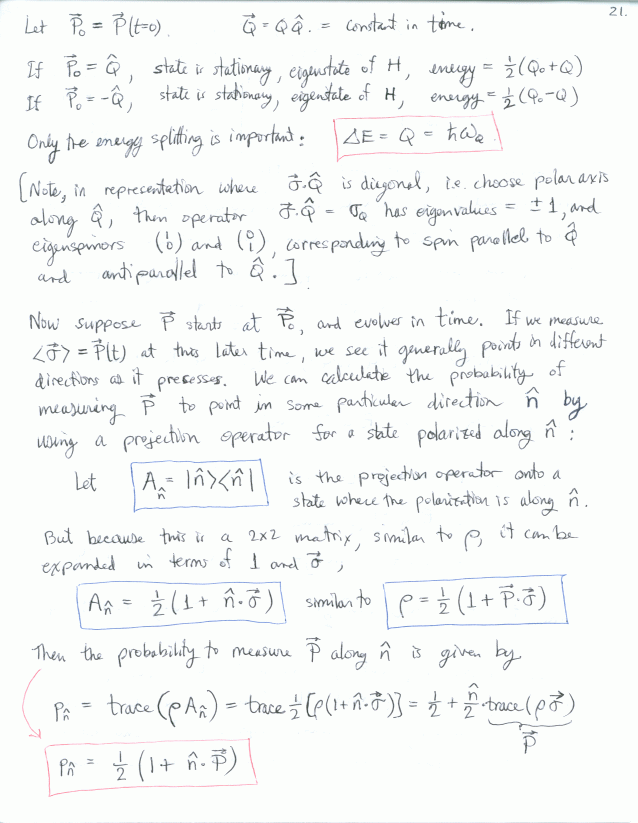 21.
Let P⃗₀ = P⃗(t=0). Q⃗ = Q Q̂. = constant in time.
If P⃗₀ = Q̂, state is stationary, eigenstate of H, energy = ½(Q₀+Q)
If P⃗₀ = -Q̂, state is stationary, eigenstate of H, energy = ½(Q₀-Q)
Only the energy splitting is important: ΔE = Q = ħω_Q
[Note, in representation where σ⃗·Q̂ is diagonal, i.e. choose polar axis
along Q̂, then operator σ⃗·Q̂ = σ_Q has eigenvalues = ±1, and
eigenspinors (1 0) and (0 1), corresponding to spin parallel to Q̂
and antiparallel to Q̂.]
Now suppose P⃗ starts at P⃗₀, and evolves in time. If we measure
<σ⃗> = P⃗(t) at this later time, we see it generally points in different
directions as it precesses. We can calculate the probability of
measuring P⃗ to point in some particular direction n̂ by
using a projection operator for a state polarized along n̂:
Let A_n̂ = |n̂><n̂| is the projection operator onto a
state where the polarization is along n̂.
But because this is a 2x2 matrix, similar to ρ, it can be
expanded in terms of 1 and σ⃗,
A_n̂ = ½(1 + n̂·σ⃗) similar to ρ = ½(1 + P⃗·σ⃗)
Then the probability to measure P⃗ along n̂ is given by
p_n̂ = trace(ρA_n̂) = trace ½[ρ(1+n̂·σ⃗)] = ½ + n̂/2·trace(ρσ⃗)
P⃗
p_n̂ = ½(1 + n̂·P⃗)